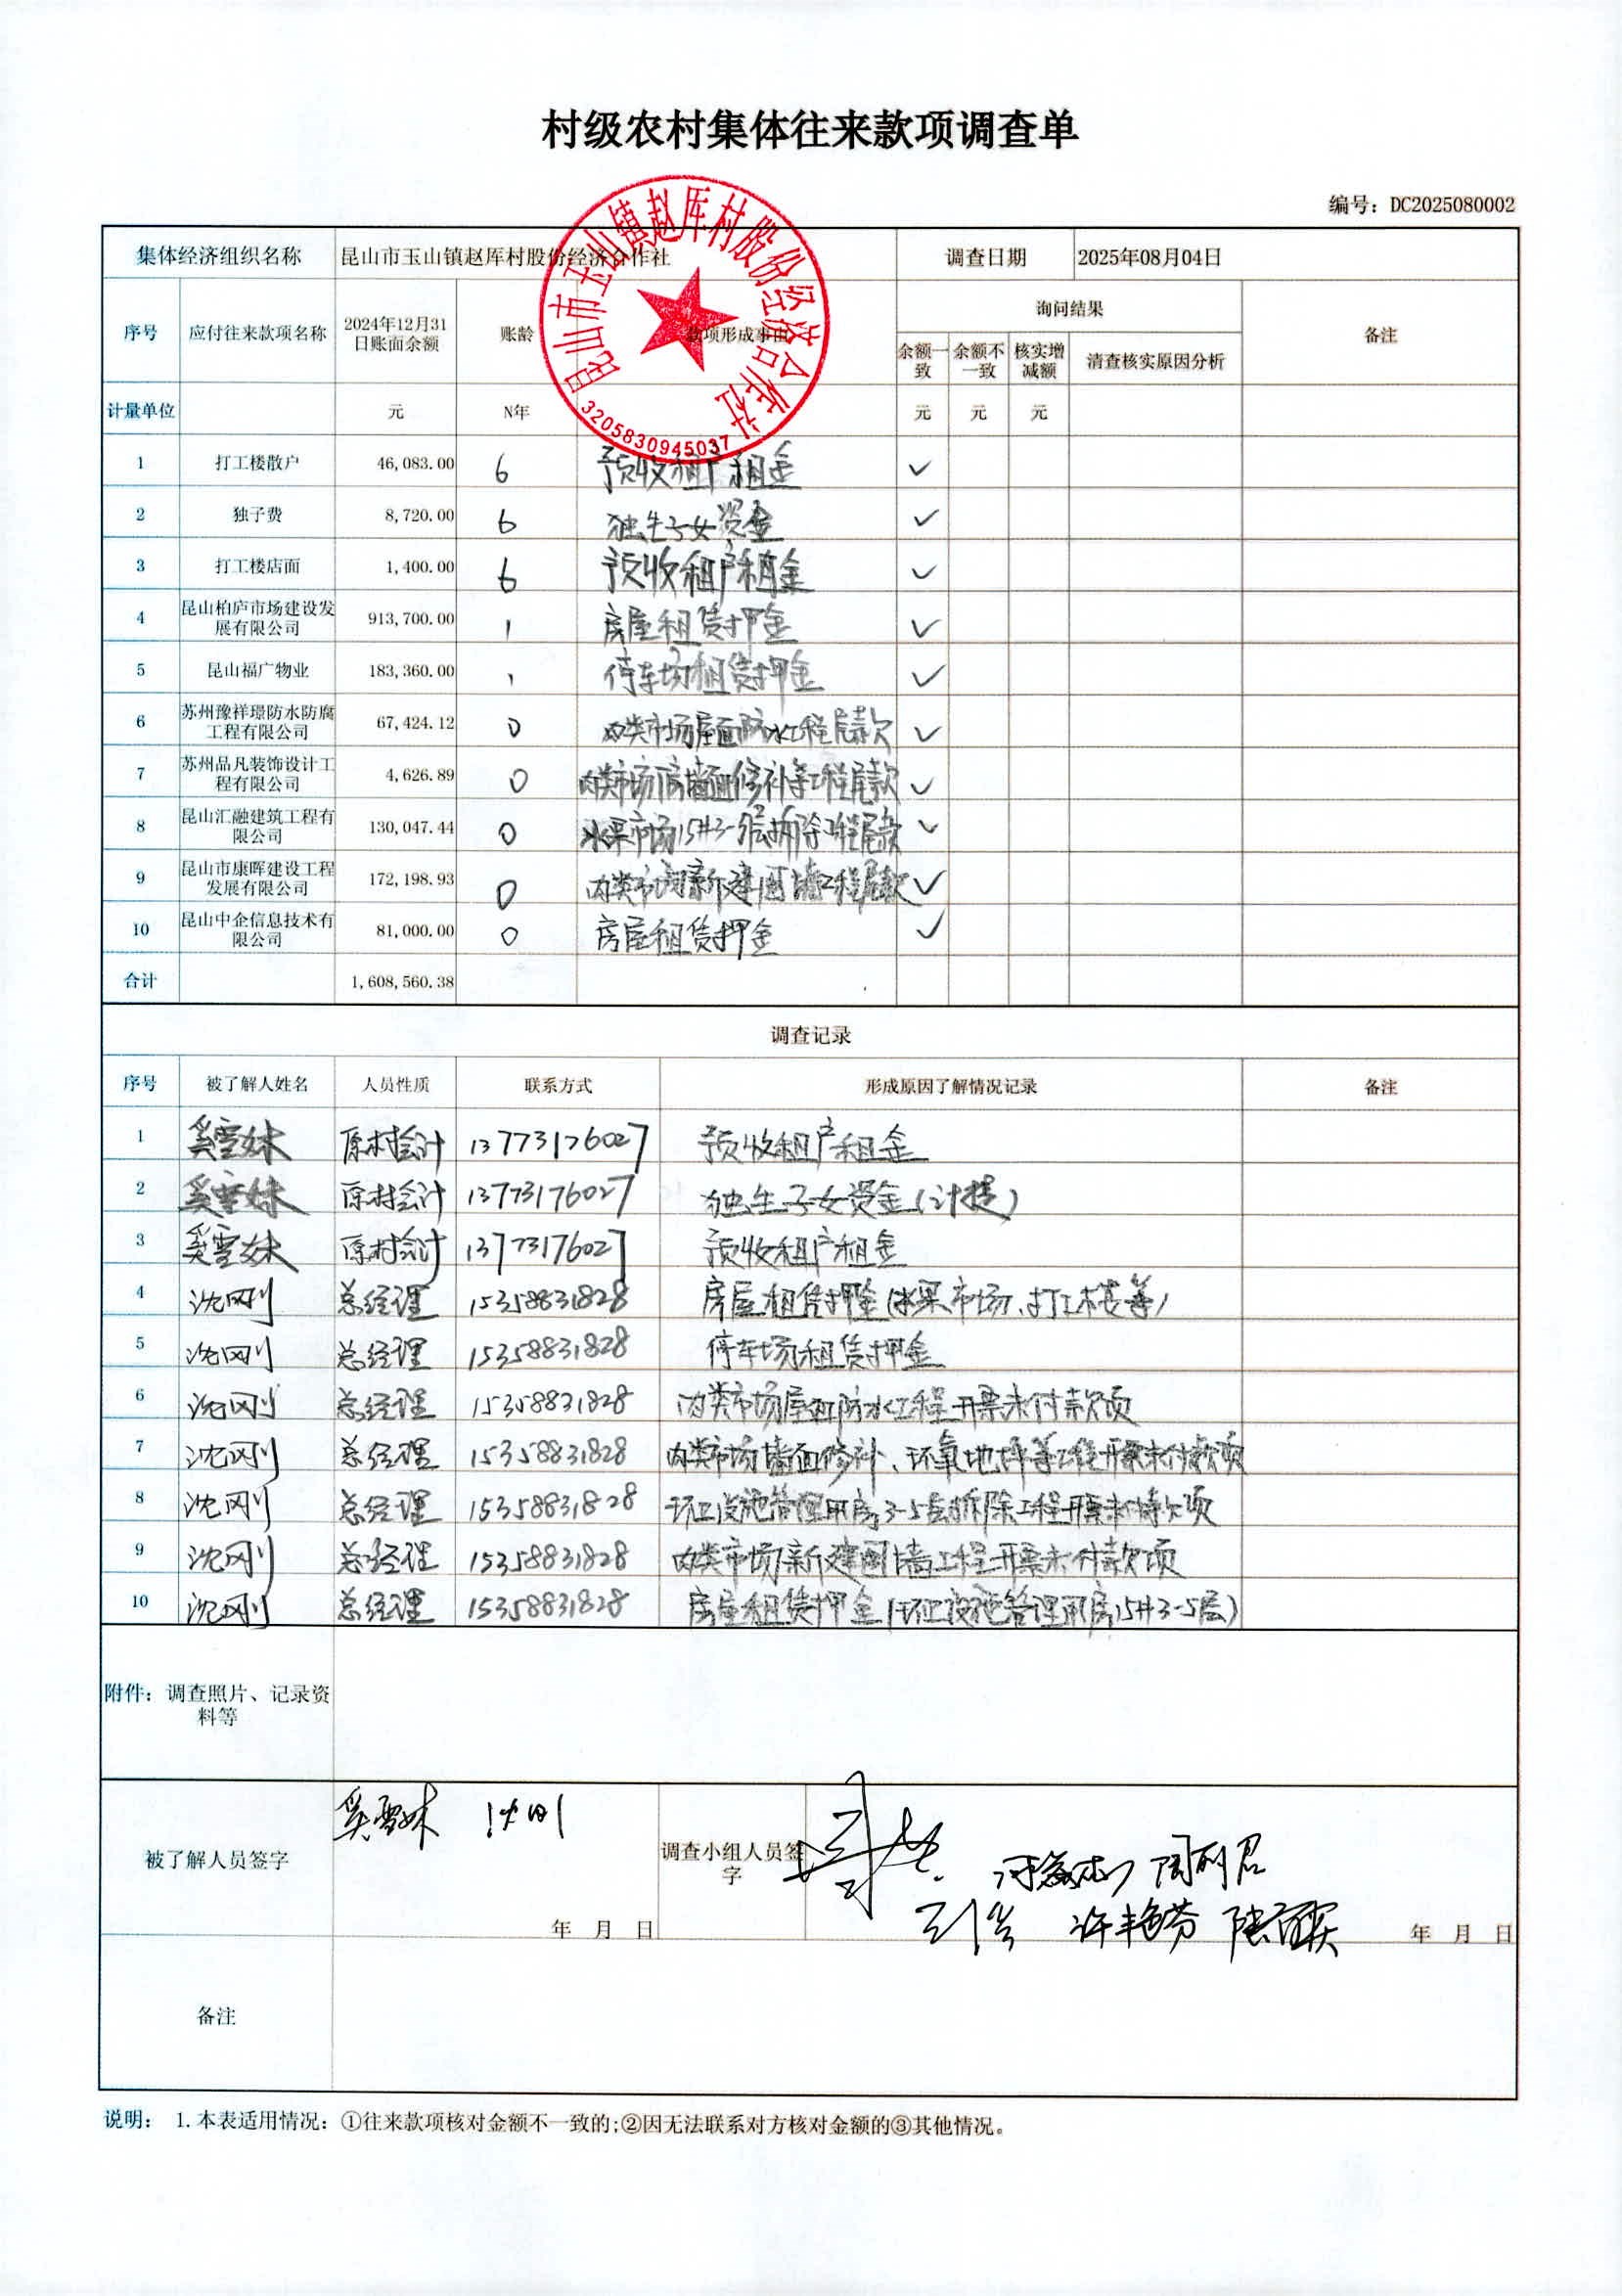 村级农村集体往来款项调查单
编号：DC2025080002
集体经济组织名称 昆山市玉山镇赵厍村股份经济合作社 调查日期 2025年08月04日
昆山市玉山镇赵厍村股份经济合作社
3205830945037
询问结果
序号 应付往来款项名称 2024年12月31日账面余额 账龄 款项形成事由 余额一致 余额不一致 核实增减额 清查核实原因分析 备注
计量单位 元 N年 元 元 元
1 打工楼散户 46,083.00 6 预收租户租金 ✓
2 独子费 8,720.00 6 独生子女资金 ✓
3 打工楼店面 1,400.00 6 预收租户租金 ✓
4 昆山柏庐市场建设发展有限公司 913,700.00 1 房屋租赁押金 ✓
5 昆山福广物业 183,360.00 1 停车场租赁押金 ✓
6 苏州豫祥璟防水防腐工程有限公司 67,424.12 0 肉类市场屋面防水工程尾款 ✓
7 苏州品凡装饰设计工程有限公司 4,626.89 0 肉类市场墙面修补等工程尾款 ✓
8 昆山汇融建筑工程有限公司 130,047.44 0 水果市场15#3-5层拆除工程尾款 ✓
9 昆山市康晖建设工程发展有限公司 172,198.93 0 肉类市场新建围墙工程尾款 ✓
10 昆山中企信息技术有限公司 81,000.00 0 房屋租赁押金 ✓
合计 1,608,560.38
调查记录
序号 被了解人姓名 人员性质 联系方式 形成原因了解情况记录 备注
1 奚雪妹 原村会计 13773176027 预收租户租金
2 奚雪妹 原村会计 13773176027 独生子女资金（计提）
3 奚雪妹 原村会计 13773176027 预收租户租金
4 沈刚 总经理 15358831828 房屋租赁押金（水果市场、打工楼等）
5 沈刚 总经理 15358831828 停车场租赁押金
6 沈刚 总经理 15358831828 肉类市场屋面防水工程开票未付款项
7 沈刚 总经理 15358831828 肉类市场墙面修补、环氧地坪等工程开票未付款项
8 沈刚 总经理 15358831828 环卫设施管理用房3-5层拆除工程开票未付款项
9 沈刚 总经理 15358831828 肉类市场新建围墙工程开票未付款项
10 沈刚 总经理 15358831828 房屋租赁押金（环卫设施管理用房15#3-5层）
附件：调查照片、记录资料等
被了解人员签字 奚雪妹 沈刚 年 月 日
调查小组人员签字 许艳芬 年 月 日
备注
说明： 1.本表适用情况：①往来款项核对金额不一致的;②因无法联系对方核对金额的③其他情况。